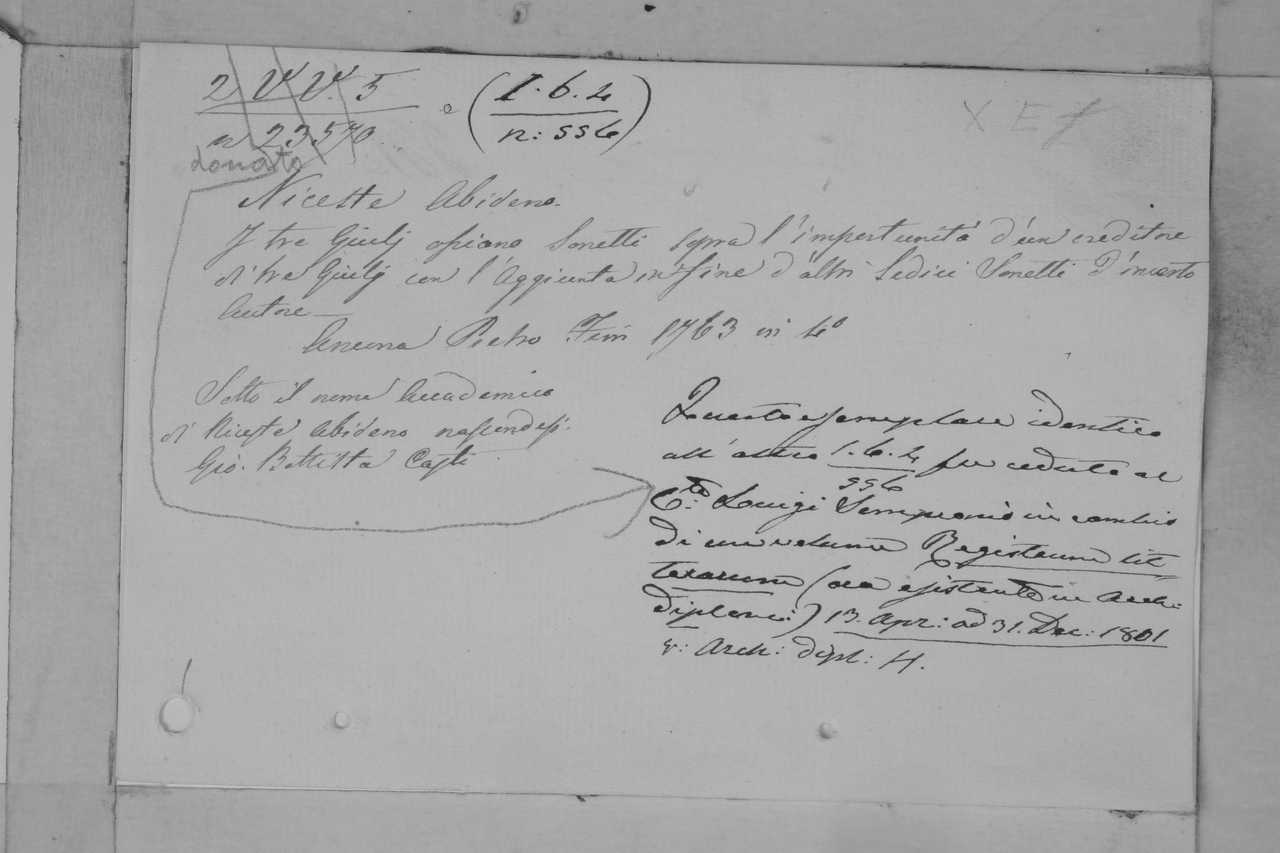 2 V V. 5
n 23570
e (I. b. 4
n: 556)
X E f
donato
Niceste Abideno.
I tre Giulj ossiano Sonetti sopra l'importunità d'un creditore
di tre Giulj con l'Aggiunta in fine d'altri Sedici Sonetti d'incerto
Autore —
Ancona Pietro Ferri 1763 in 4º
Sotto il nome Accademico
di Niceste Abideno nascondesi
Gio. Battista Casti
Questo esemplare identico
all'altro I. b. 4 fu ceduto al
556
C.te Luigi Sempronio in cambio
di un volume Registrum lit
terarum (ora esistente in Arch:
diplom:) 13. Apr: ad 31. Dec: 1801
v: Arch: dipl: H.